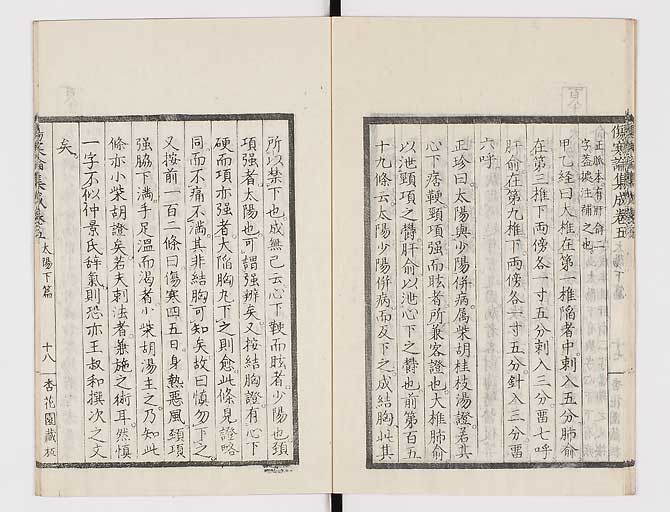 傷寒論集成卷五
正脈本有肝俞二
字蓋據注補之也
甲乙經曰大椎在第一椎陷者中刺入五分肺俞
在第三椎下兩傍各一寸五分刺入三分留七呼
肝俞在第九椎下兩傍各一寸五分針入三分留
六呼
正珍曰太陽與少陽併病属柴胡桂枝湯證若其
心下痞鞕頸項強而眩者所兼客證也大椎肺俞
以泄頸項之欝肝俞以泄心下之欝也前第百五
十九條云太陽少陽併病而反下之成結胸此其
所以禁下也成無己云心下鞕而眩者少陽也頸
項強者太陽也可謂強辨矣又按結胸證有心下
硬而項亦强者大陷胸丸下之則愈此條見證略
同而不痛不滿其非結胸可知矣故曰慎勿下之
又按前一百二條曰傷寒四五日身熱惡風頸項
强脇下滿手足温而渴者小柴胡湯主之乃知此
條亦小柴胡證矣若夫刺法者兼施之術耳然慎
一字不似仲景氏辞氣則恐亦王叔和撰次之文
矣
太陽下篇
十八
杏花園藏板